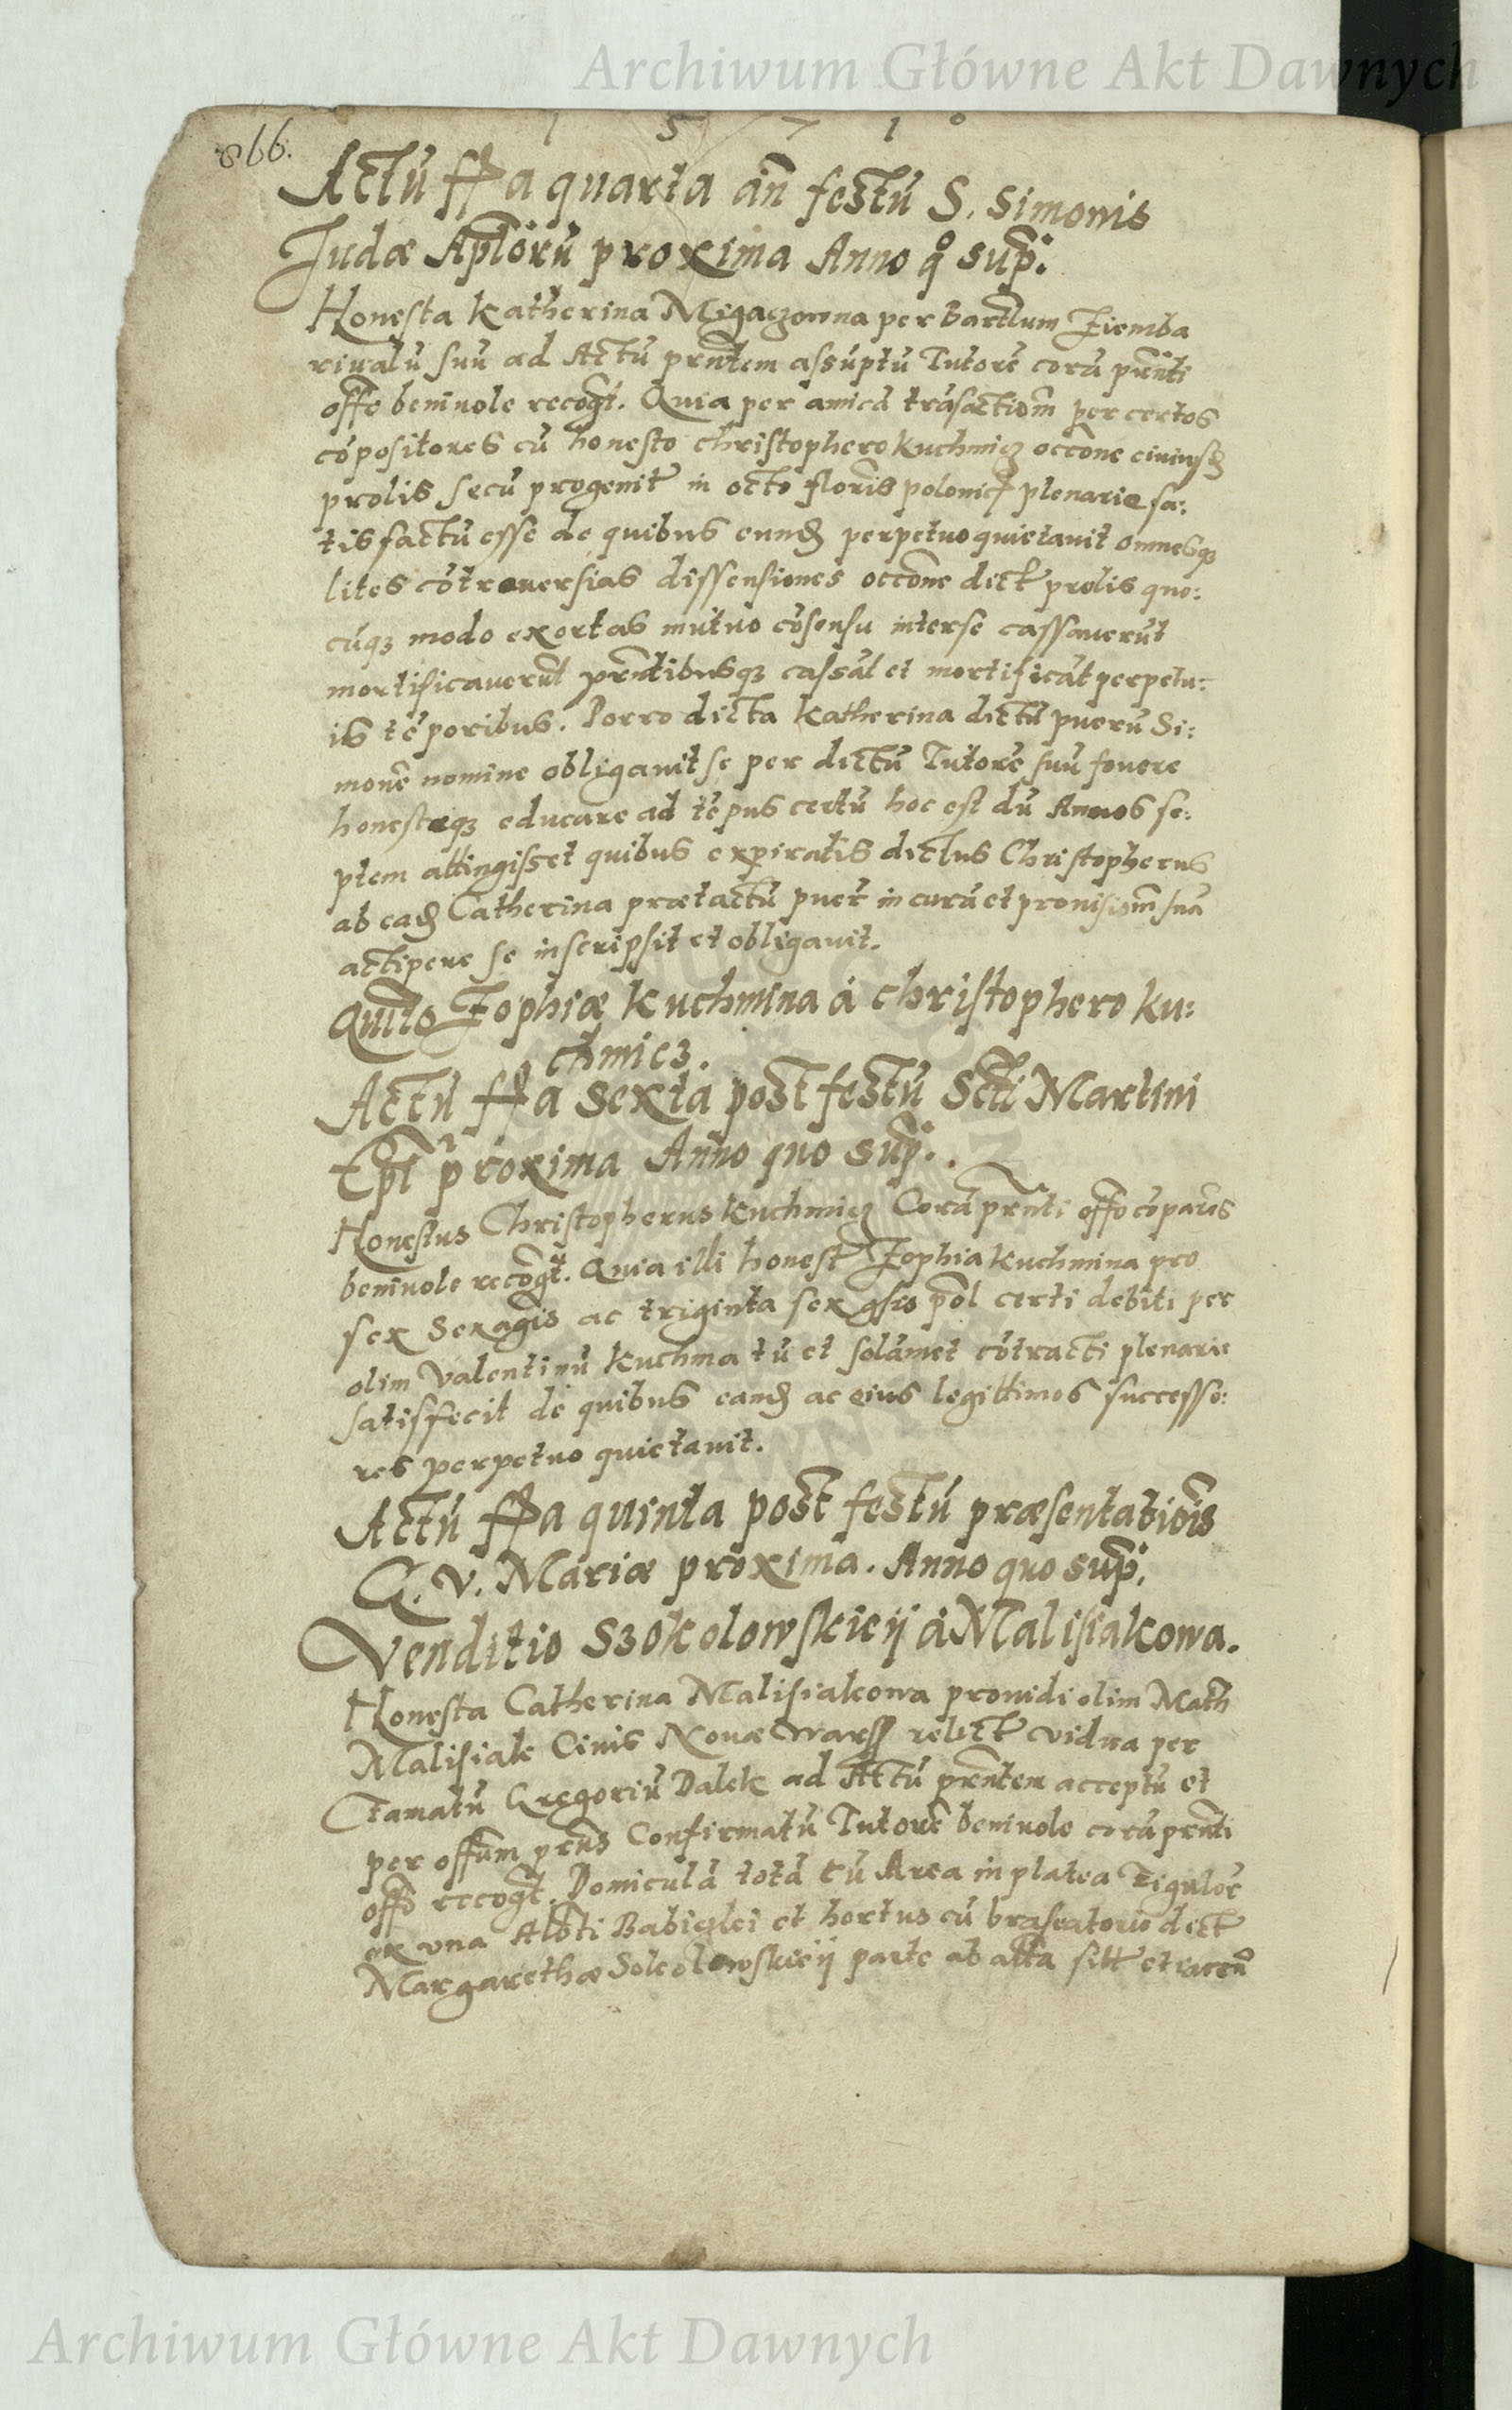 Archiwum Główne Akt Dawnych
1 5 7 1º
866.
Actū ffa quarta añ festū S. Simonis
Judæ Aplorū proxima Anno qº sup:
Honesta Katherina Migaczowna per Bartlum Ziemba
riualū suū ad Actū prntem assūptū Tutorē corā prnti
offo beniuole recogt. Quia per amicā trāsactiom per certos
cōpositores cū honesto christophero Kuchmicz occōne
prolis secū progenit in octo floris polonic plenarie sa:
tisfactū esse de quibus eund perpetuo quietauit omnesq;
lites cōtrouersias dissensiones occōne dict prolis quo:
cūq; modo exortas mutuo cōsensu inter se cassauerūt
mortificauerūt prntibusq; cassāt et mortificāt perpetu:
is tēporibus. Porro dicta Katherina dictū puerū Si:
monē nomine obligauit se per dictū Tutorē suū fouere
honesteq; educare ad tēpus certū hoc est dū Annos se:
ptem attingisset quibus expiratis dictus Christopherus
ab ead Catherina prætactū puer in curā et prouisiom suā
accipere se inscripsit et obligauit.
Quitō Zophiæ Kuchmina à christophero Ku:
chmicz.
Actū ffa sexta post festū Scti Martini
Epi proxima Anno quo sup:.
Honestus Christopherus Kuchmicz Corā prnti offo cōparēs
beniuole recogt. Quia illi honest Zophia Kuchmina pro
sex Sexagis ac triginta sex gris pol certi debiti per
olim Valentinū Kuchma tū et solāmet cōtracti plenarie
satisfecit de quibus eand ac eius legittimos successo:
res perpetuo quietauit.
Actū ffa quinta post festū præsentatiois
G. V. Mariæ proxima. Anno quo sup:
Venditio Szokolowskieij à Malisiakowa.
Honesta Catherina Malisiakowa prouidi olim Math
Malisiak Ciuis Nouæ Wars relict vidua per
famatū Gregoriū Dalek ad Actū prntem acceptū et
per offūm prns Confirmatū Tutorē beniuole corā prnti
offo recogt. Domiculā totā cū Area in platea Figulor
ex una Albti et hortus cū braseatorio dict
Margarethæ Sokolowskieij parte ab alta sitt et iacen
Archiwum Główne Akt Dawnych